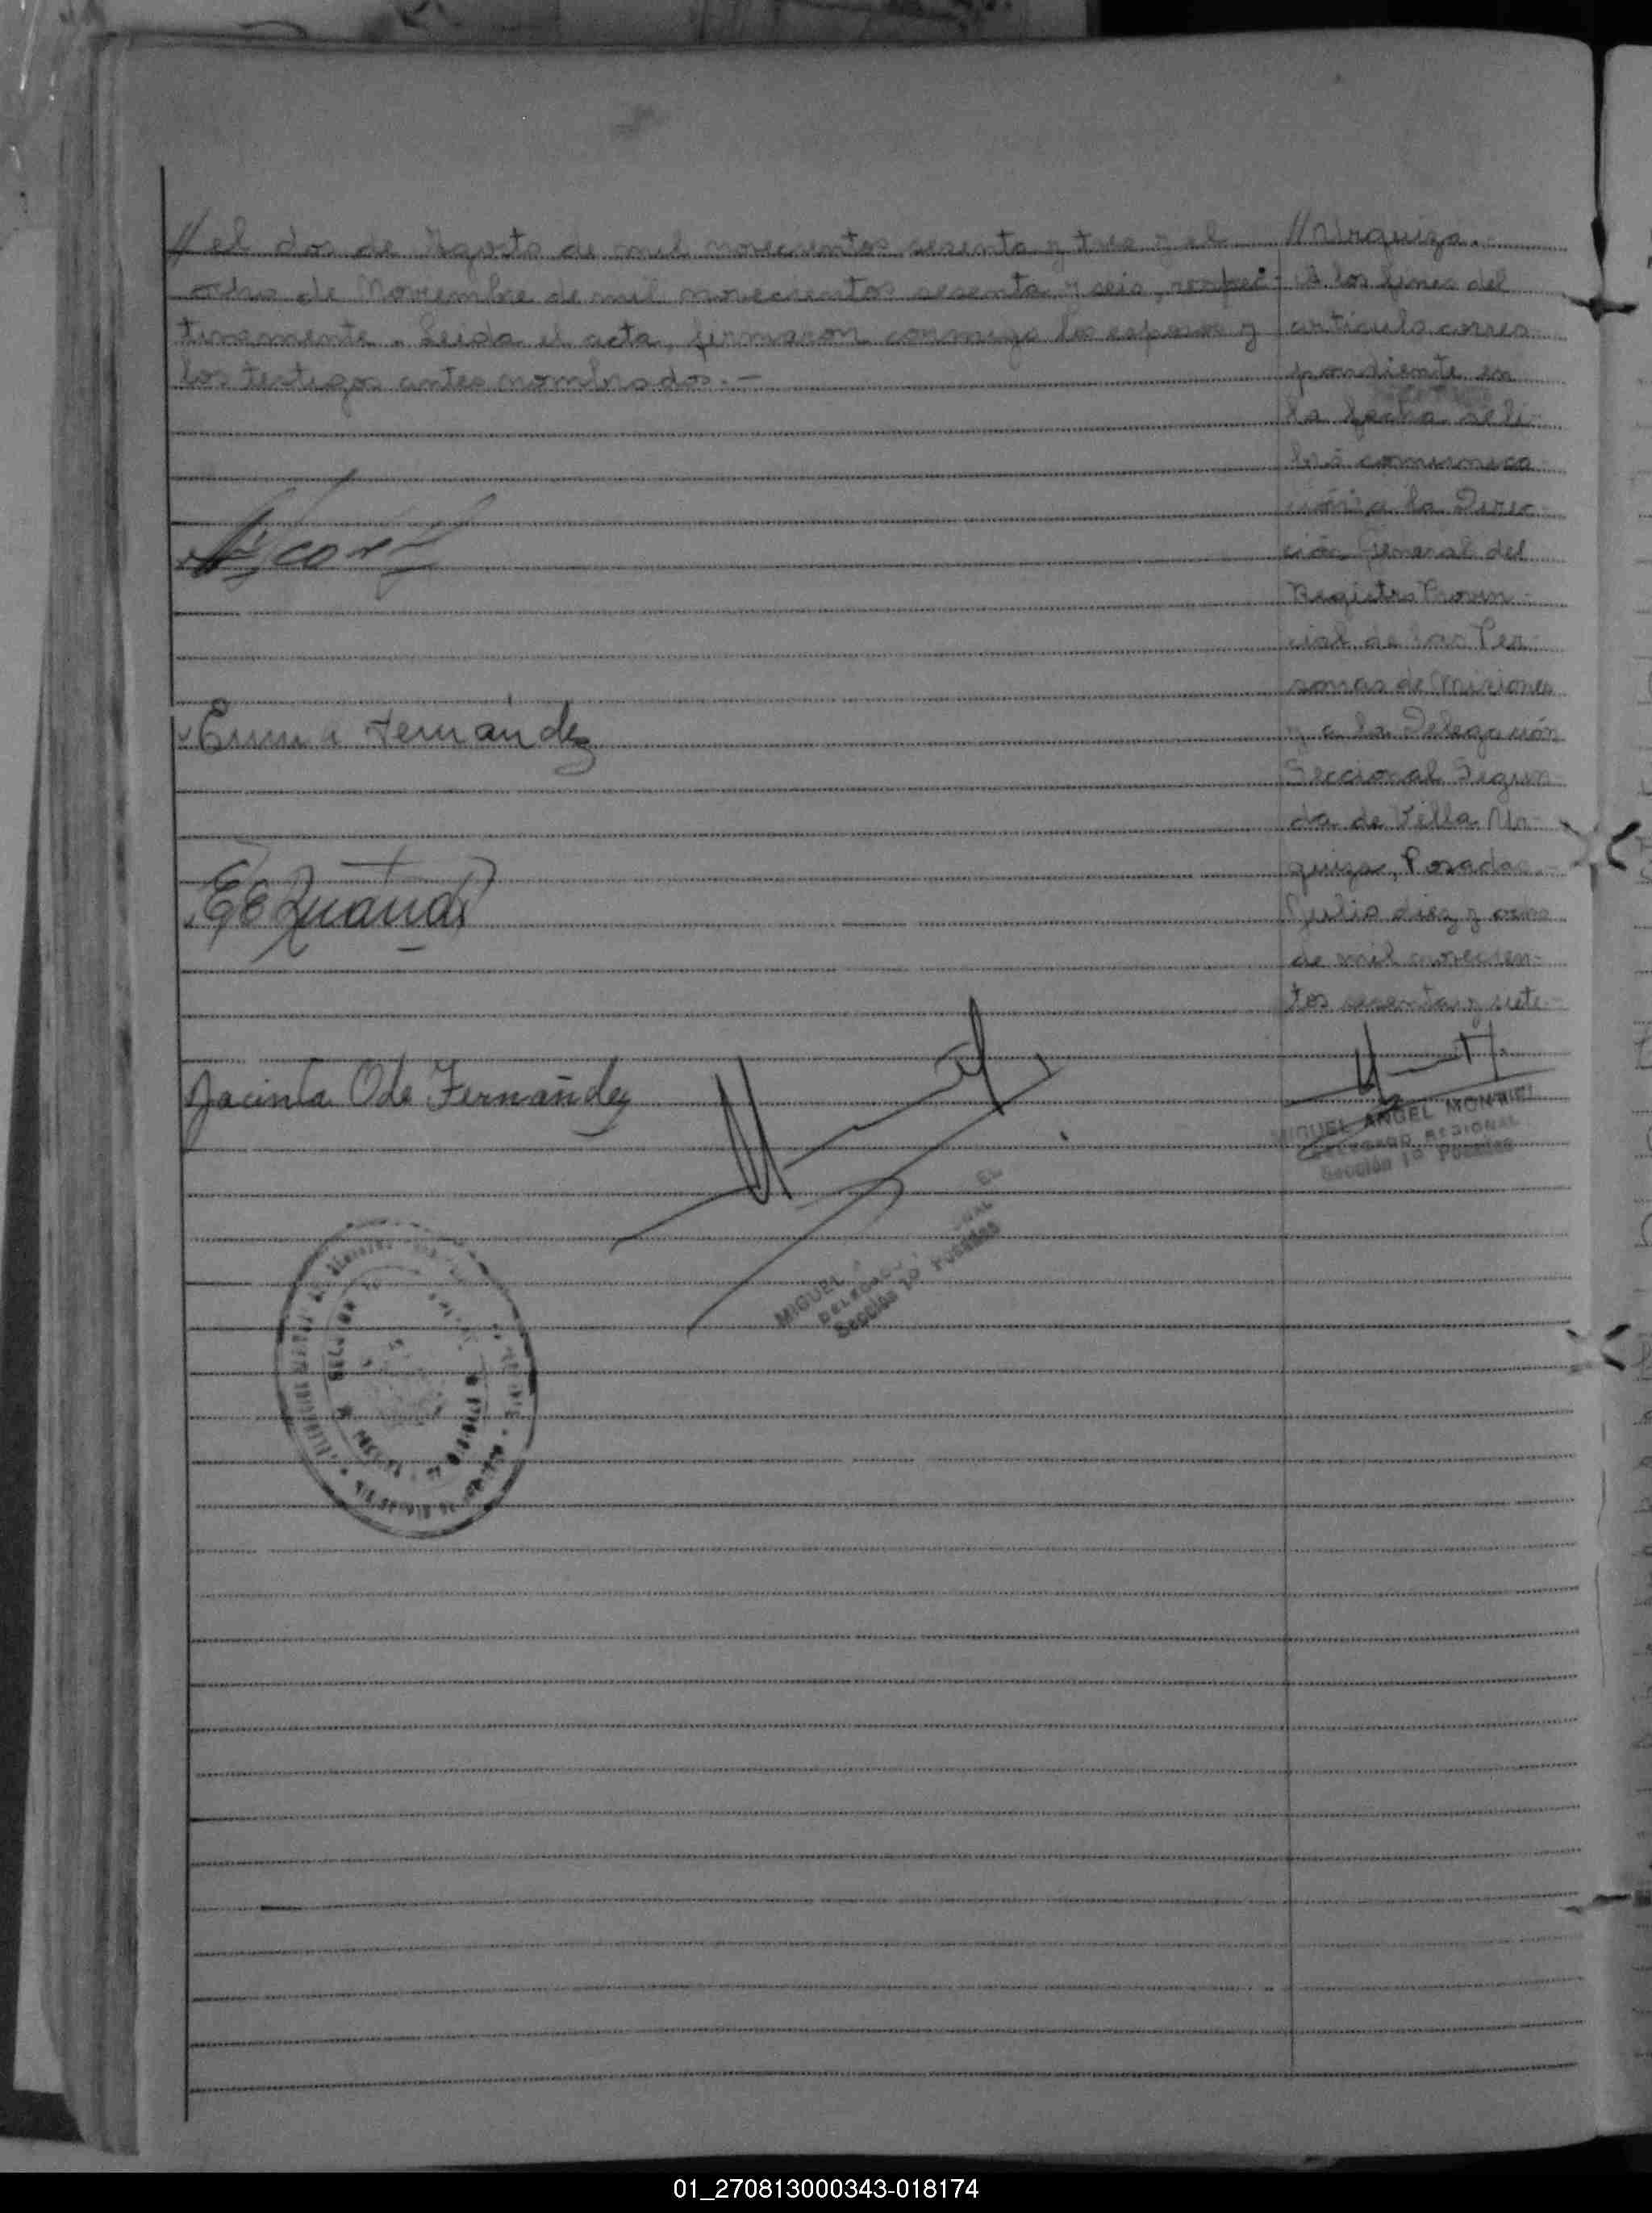 // el dos de Agosto de mil novecientos sesenta y tres y el
ocho de Noviembre de mil novecientos sesenta y seis, respec-
tivamente. Leida el acta, firmaron conmigo los esposos y
los testigos antes nombrados.-
Emma Fernández
Jacinta Oda Fernández
MIGUEL
DELEGADO
Sección 1º Posadas
// Urquiza.-
A los fines del
artículo corres
pondiente en
la fecha se li-
bró comunica-
ción a la Direc-
ción General del
Registro Provin-
cial de las Per-
sonas de Misiones
y a la Delegación
Seccional Segun-
da de Villa Ur-
quiza, Posadas.-
Julio diez y ocho
de mil novecien-
tos sesenta y siete-
MIGUEL ANGEL MONTIEL
DELEGADO REGIONAL
Sección 1º Posadas
01_270813000343-018174